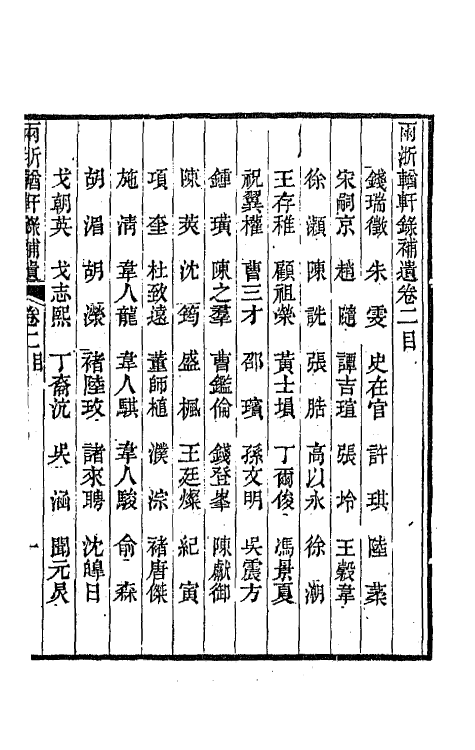 兩浙輶軒錄補遺卷二目
錢瑞徵 朱雯 史在官 許琪 陸葇
宋嗣京 趙隨 譚吉瑄 張坽 王縠韋
徐灝 陳詵 張皓 高以永 徐潮
王存稚 顧祖榮 黃士塤 丁爾俊 馮景夏
祝翼權 曹三才 邵璸 孫文明 吳震方
鍾璜 陳之羣 曹鑑倫 錢登峯 陳獻御
陳葵 沈筠 盛楓 王廷燦 紀寅
項奎 杜致遠 董師植 濮淙 褚唐傑
施清 韋人龍 韋人騏 韋人駿 俞森
胡湄 胡濴 褚陸玫 諸來聘 沈皥日
戈朝英 戈志熙 丁裔沆 吳涵 聞元炅
兩浙輶軒錄補遺 卷二目 一